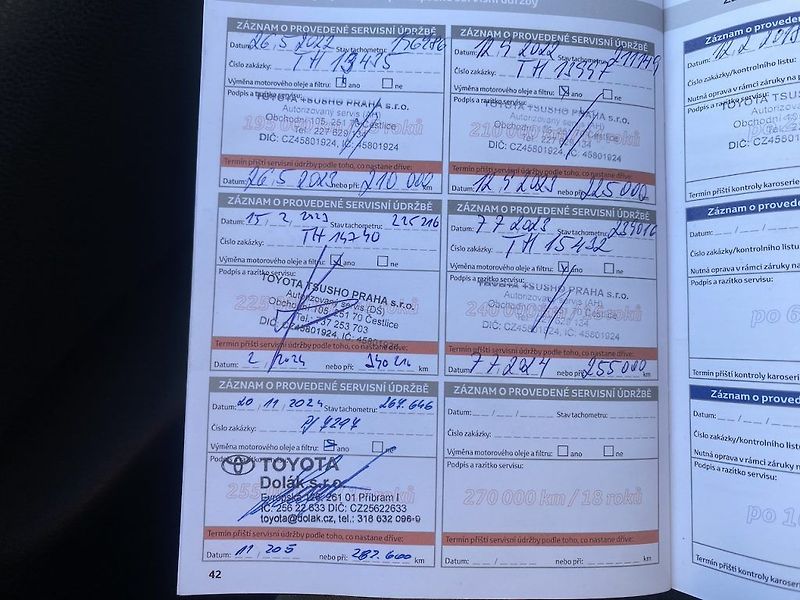 ZÁZNAM O PROVEDENÉ SERVISNÍ ÚDRŽBĚ
Datum: 26,5 2022 Stav tachometru:
Číslo zakázky: TH 13415
Výměna motorového oleje a filtru: ano ne
Podpis a razítko servisu:
TOYOTA TSUSHO PRAHA s.r.o.
Autorizovaný servis (AH)
Obchodní 105, 251 70 Čestlice
Tel.: 227 829 134
DIČ: CZ45801924, IČ: 45801924
Termín příští servisní údržby podle toho, co nastane dříve:
Datum: 26,5 2023 nebo při: 210 000 km
ZÁZNAM O PROVEDENÉ SERVISNÍ ÚDRŽBĚ
Datum: 12,9 2022 Stav tachometru:
Číslo zakázky: TH 13997
Výměna motorového oleje a filtru: ano ne
Podpis a razítko servisu:
TOYOTA TSUSHO PRAHA s.r.o.
Autorizovaný servis (AH)
Obchodní 105, 251 70 Čestlice
Tel.: 227 829 134
DIČ: CZ45801924, IČ: 45801924
210 000
Termín příští servisní údržby podle toho, co nastane dříve:
Datum: 12,9 2023 nebo při: 225 000 km
ZÁZNAM O PROVEDENÉ SERVISNÍ ÚDRŽBĚ
Datum: 15, 2, 2023 Stav tachometru: 225216
Číslo zakázky: TH 14740
Výměna motorového oleje a filtru: ano ne
Podpis a razítko servisu:
TOYOTA TSUSHO PRAHA s.r.o.
Autorizovaný servis (DS)
Obchodní 105, 251 70 Čestlice
Tel.: 737 253 703
DIČ: CZ45801924, IČ: 45801924
Termín příští servisní údržby podle toho, co nastane dříve:
Datum: 2 / 2024 nebo při: km
ZÁZNAM O PROVEDENÉ SERVISNÍ ÚDRŽBĚ
Datum: 7 7 2023 Stav tachometru:
Číslo zakázky: TH 15432
Výměna motorového oleje a filtru: ano ne
Podpis a razítko servisu:
TOYOTA TSUSHO PRAHA s.r.o.
Autorizovaný servis (AH)
Obchodní 105, 251 70 Čestlice
DIČ: CZ45801924, IČ: 45801924
240 000
Termín příští servisní údržby podle toho, co nastane dříve:
Datum: 7 7 2024 nebo při: 255 000 km
ZÁZNAM O PROVEDENÉ SERVISNÍ ÚDRŽBĚ
Datum: 20 / 11 / 2024 Stav tachometru: 267.646
Číslo zakázky:
Výměna motorového oleje a filtru: ano ne
Podpis a razítko servisu:
TOYOTA
Dolák s.r.o.
Evropská 126, 261 01 Příbram I
IČ: 256 22 633 DIČ: CZ25622633
toyota@dolak.cz, tel.: 318 632 096-9
Termín příští servisní údržby podle toho, co nastane dříve:
Datum: 11 / 205 nebo při: 282.600 km
ZÁZNAM O PROVEDENÉ SERVISNÍ ÚDRŽBĚ
Datum: Stav tachometru:
Číslo zakázky:
Výměna motorového oleje a filtru: ano ne
Podpis a razítko servisu:
270 000 km / 18 roků
Termín příští servisní údržby podle toho, co nastane dříve:
Datum: nebo při: km
42
Záznam o provedené
Datum:
Číslo zakázky/kontrolního listu:
Nutná oprava v rámci záruky na
Podpis a razítko servisu:
Termín příští kontroly karoserie
Záznam o provedené
Datum:
Číslo zakázky/kontrolního listu
Nutná oprava v rámci záruky na
Podpis a razítko servisu:
po 6
Termín příští kontroly karoserie
Datum:
Číslo zakázky/kontrolního listu
Nutná oprava v rámci záruky
Podpis a razítko servisu:
po
Termín příští kontroly karoserie